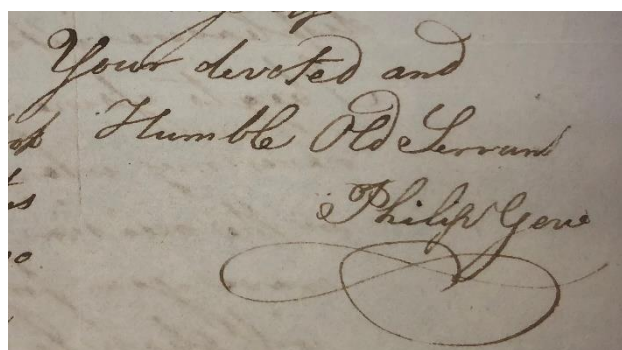 Your devoted and
Humble Old Servant
Philip Gove